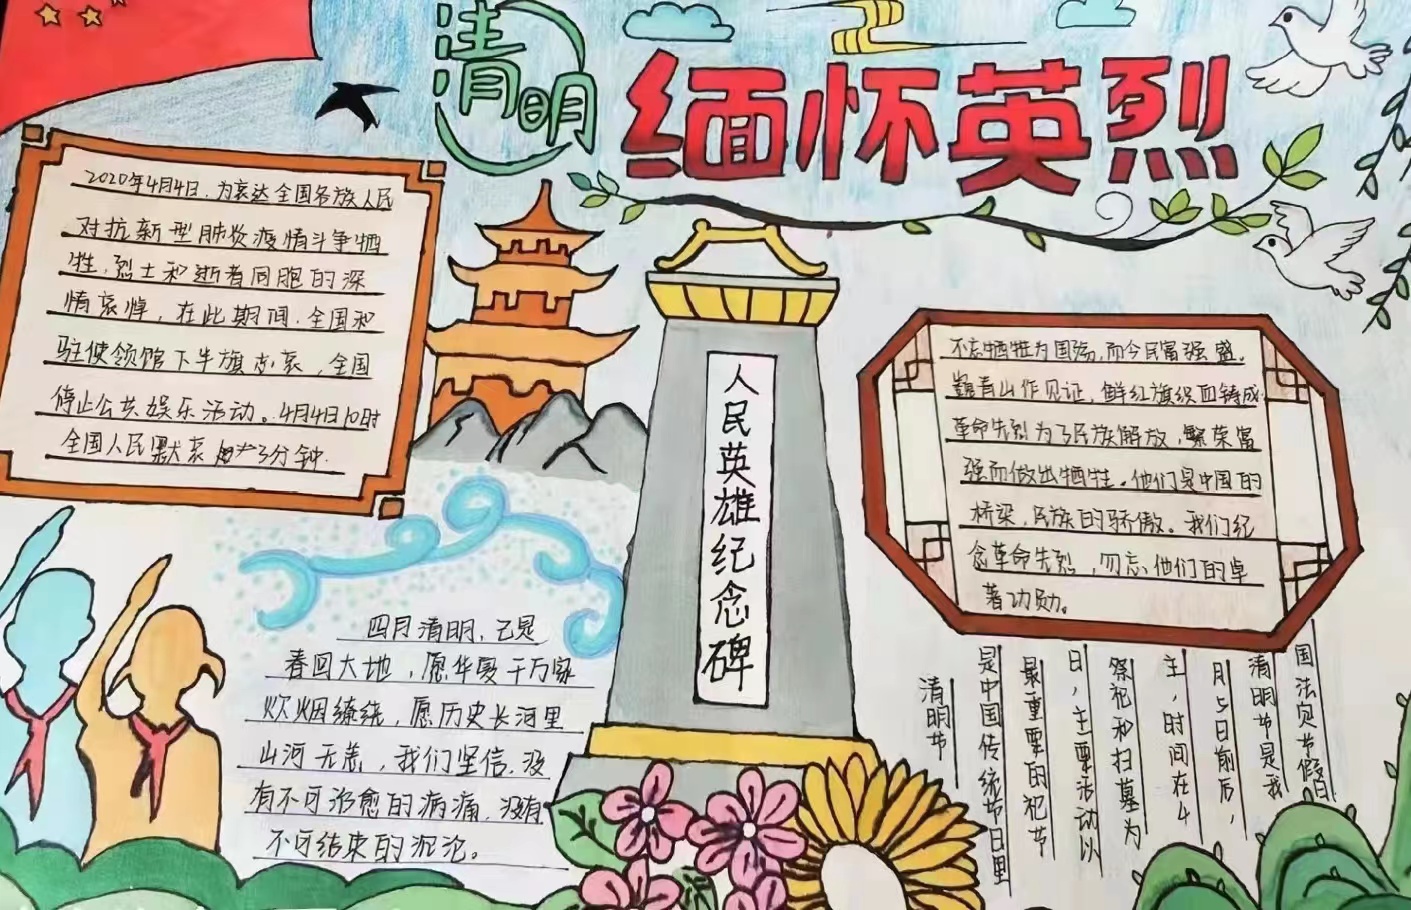 清明
缅怀英烈
2020年4月4日，为表达全国各族人民
对抗新型肺炎疫情斗争牺
牲，烈士和逝者同胞的深
情哀悼，在此期间，全国和
驻使领馆下半旗志哀，全国
停止公共娱乐活动。4月4日10时
全国人民默哀3分钟.
人民英雄纪念碑
不忘牺牲为国殇，而今民富强盛。
巍青山作见证，鲜红旗织血铸成
革命先烈为了民族解放，繁荣富
强而做出牺牲。他们是中国的
桥梁，民族的骄傲。我们纪
念革命先烈，勿忘他们的卓
著功勋。
四月清明，已是
春回大地，愿华夏千万家
炊烟缭绕，愿历史长河里
山河无恙，我们坚信，没
有不可治愈的病痛，没有
不可结束的沉沦。
清明节
是中国传统节日里
最重要的祀节
日，主要活动以
祭祀和扫墓为
主，时间在4
月5日前后，
清明节是我
国法定节假日